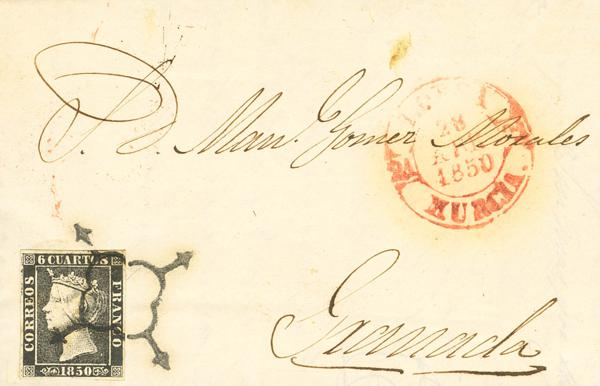 S. D. Man. Gomez Morales
28
1850
MURCIA.
Granada
6 CUARTOS
CORREOS
FRANCO
1850